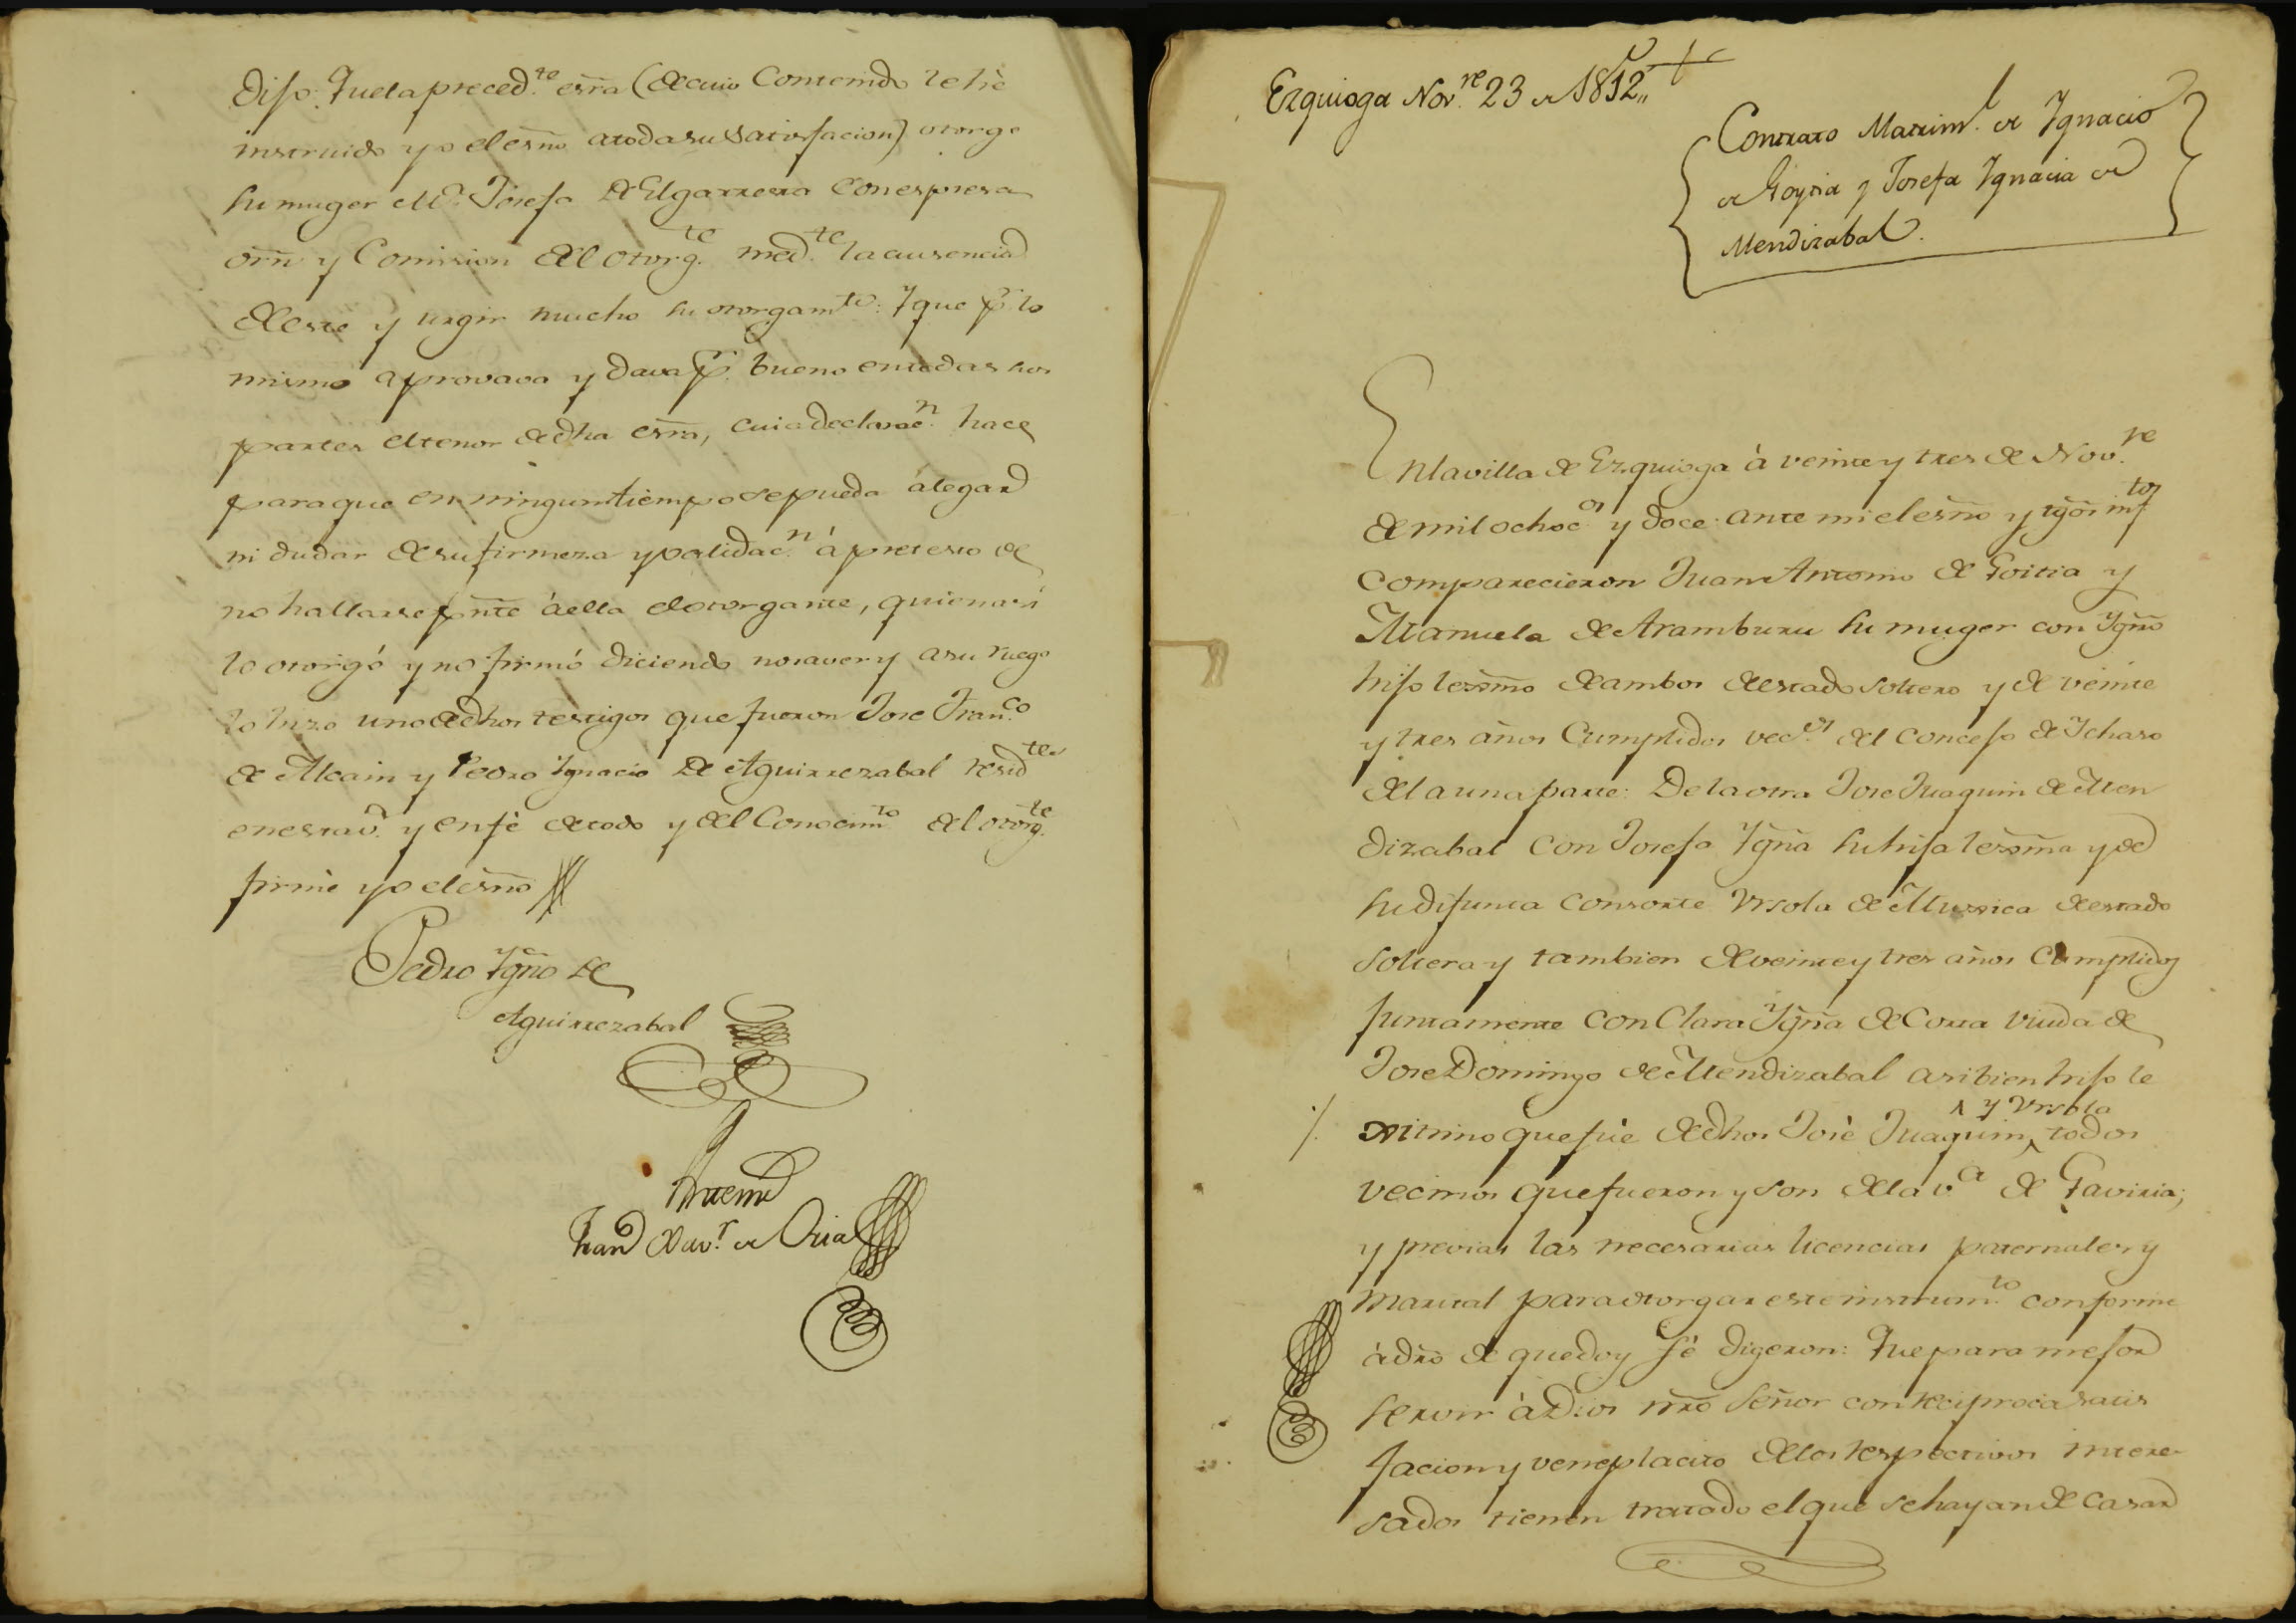 dijo: Que la preced.te esr̃a (de cuio Contenido le hè
instruido yo el esño. a toda su Satisfacion) otorgo
su muger M.a Josefa de Elgarresta Con espresa
orñ y Comision del otorg.te med.te la ausencia
de este y urgir mucho su otorgam.to: Y que p.r lo
mismo aprovava y dava p.r bueno en todas sus
partes el tenor de dha esr̃a, cuia declarac.n hace
para que en ningun tiempo se pueda àlegar
ni dudar de su firmeza y validac.n à pretesto de
no hallarse pnte à ella el otorgante, quien asi
lo otorgó y no firmó diciendo no saver y a su ruego
lo hizo uno de dhos testigos que fueron Jose Fran.co
de Alcain y Pedro Ignacio de Aguirrezabal resid.tes
en esta v.a y en fè de todo y del Conocim.to del otorg.te
firmé yo el esño
Pedro Ygño de
Aguirrezabal
Ante mi
Fran.co Xav.r de Oria
Ezquioga Nov.re 23 de 1812,,
Contrato Matrim.l de Ygnacio
de Goytia y Josefa Ygnacia de
Mendizabal.
En la villa de Ezquioga à veinte y tres de Nov.re
de mil ochoc.os y doce: ante mi el esño y tgõs inf.tos
comparecieron Juan Antonio de Goitia y
Manuela de Aramburu su muger con Ygño
hijo lexmõ de ambos de estado soltero y de veinte
y tres años Cumplidos vec.os del concejo de Ichaso
de la una parte: De la otra Jose Juaquin de Men
dizabal con Josefa Ygña su hija lexmã y de
su difunta consorte Vrsola de Muxica de estado
soltera y tambien de veinte y tres años Cumplidos
juntamente con Clara Ygña de Corta viuda de
Jose Domingo de Mendizabal asi bien hijo le
xitimo que fùe de dhos Josè Juaquin ^ y Vrsola todos
vecinos que fueron y son de la v.a de Gaviria;
y previas las necesarias licencias paternales y
marital para otorgar este instrum.to conforme
à dr̃o de que doy fé digeron: Que para mejor
servir à Dios nr̃o Señor con reciproca satis
facion y veneplacito de los respectivos intere-
sados tienen tratado el que se hayan de casar